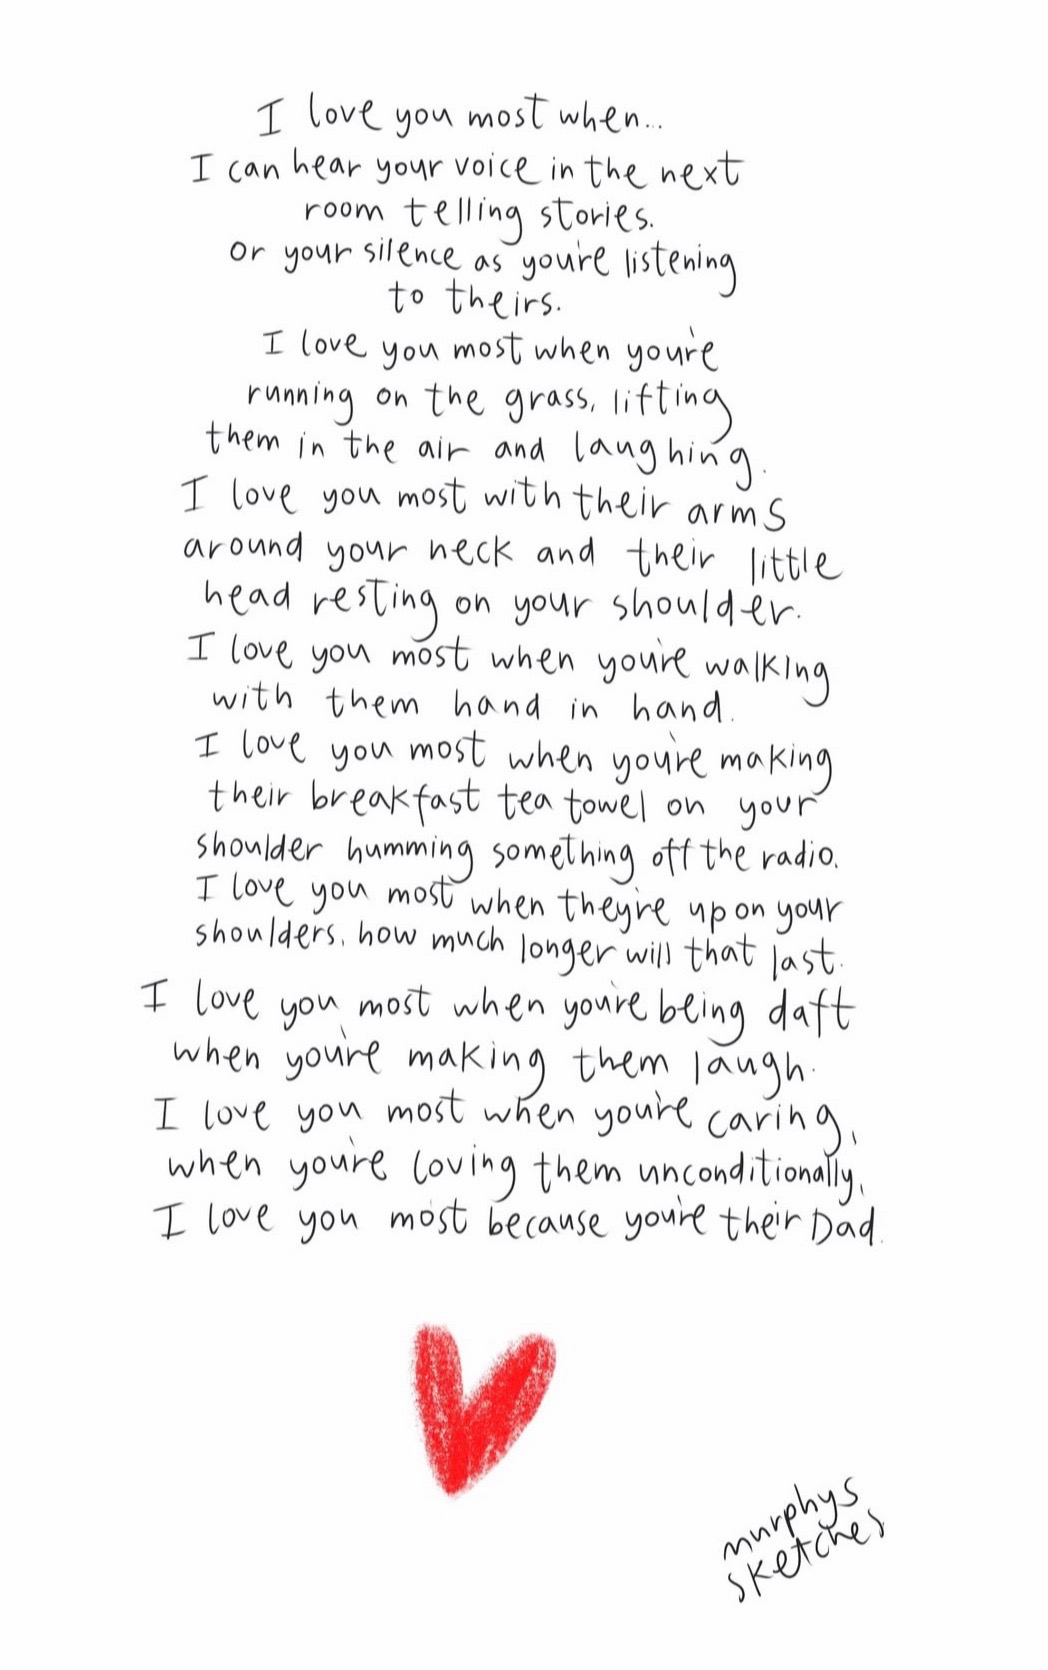 I love you most when...
I can hear your voice in the next
room telling stories.
or your silence as you're listening
to theirs.
I love you most when you're
running on the grass, lifting
them in the air and laughing.
I love you most with their arms
around your neck and their little
head resting on your shoulder.
I love you most when you're walking
with them hand in hand.
I love you most when you're making
their breakfast tea towel on your
shoulder humming something off the radio.
I love you most when they're up on your
shoulders, how much longer will that last.
I love you most when you're being daft
when you're making them laugh.
I love you most when you're caring,
when you're loving them unconditionally,
I love you most because you're their Dad.
murphys
sketches